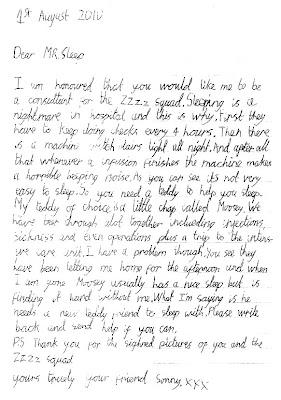 1st August 2010
Dear MR. Sleep
I am honoured that you would like me to be
a consultant for the ZZzz squad. Sleeping is a
nightmare in hospital and this is why. First they
have to keep doing checks every 4 hours. Then there
is a machine witch lairs light all night. And after all
that whenever a infusion finishes the machine makes
a horrible beeping noise. As you can see it's not very
easy to sleep. So you need a teddy to help you sleep.
My teddy of choice is a little chap called Moosey. We
have been through alot together including injections,
sickness and even operations plus a trip to the intens-
ive care unit. I have a problem though. You see they
have been letting me home for the afternoon and when
I am gone Moosey usually has a nice sleep but is
finding it hard without me. What I'm saying is he
needs a new teddy friend to sleep with. Please write
back and send help if you can.
P.S Thank you for the sighned pictures of you and the
ZZzz squad
yours truely your friend Sonny. xxx